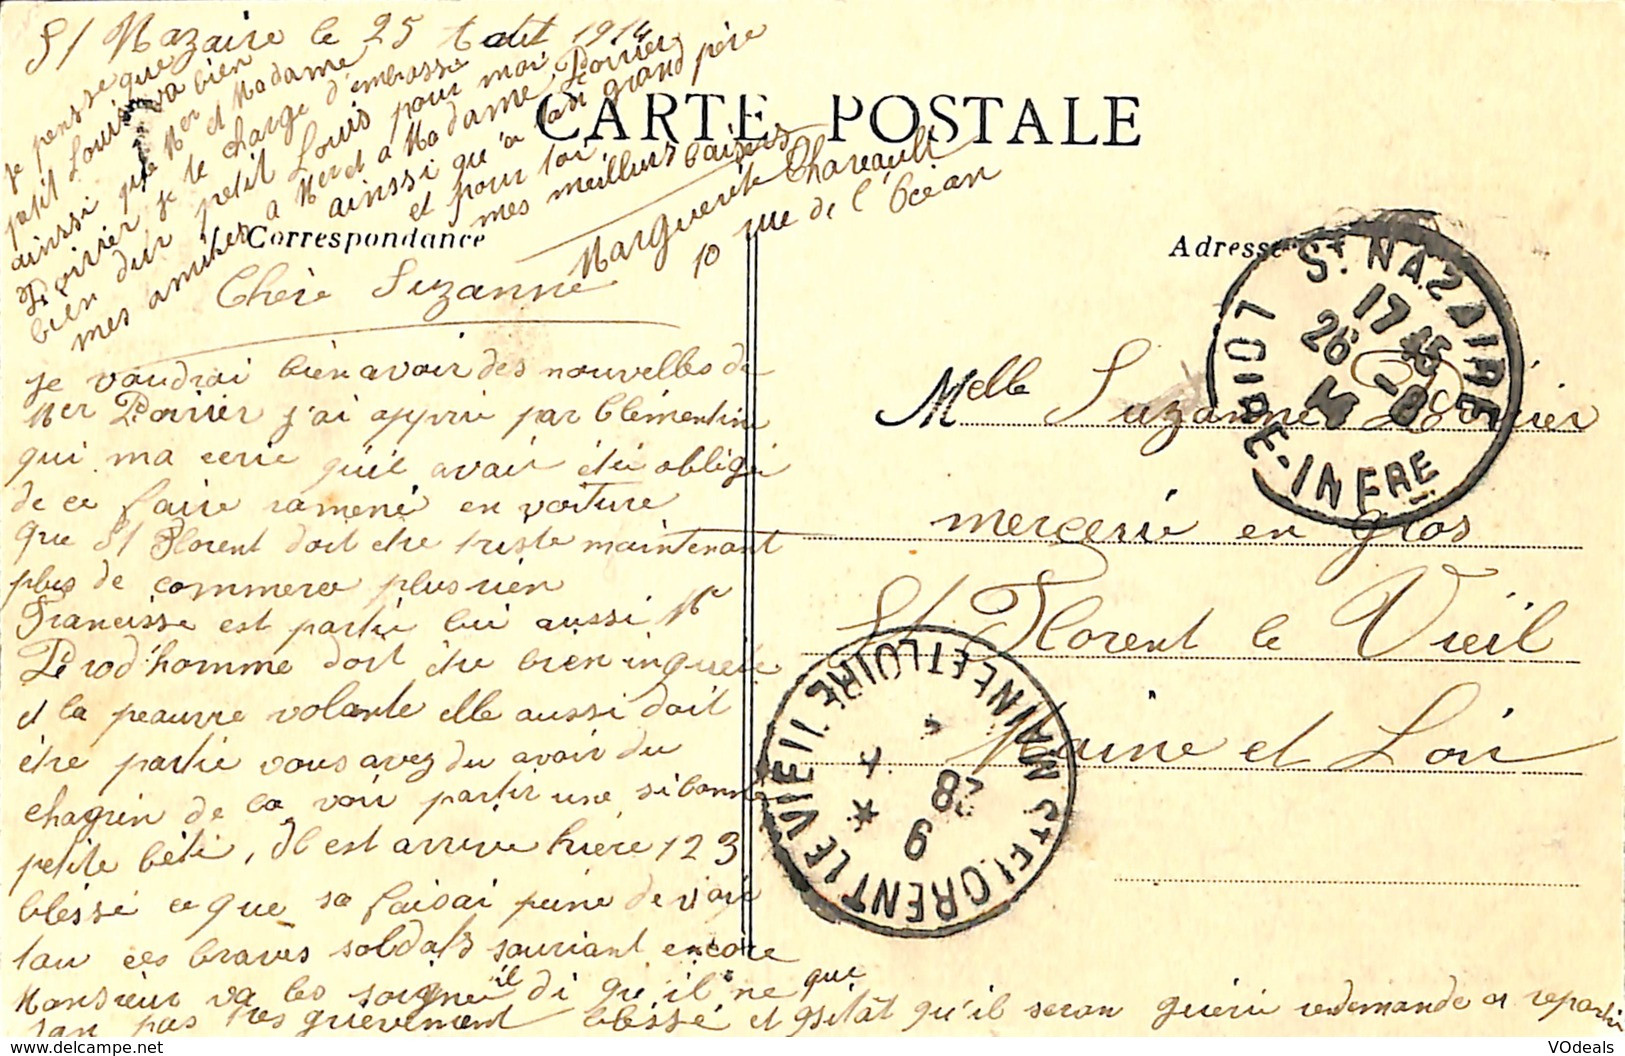 St Nazaire le 25 Aout 1914
CARTE POSTALE
Correspondance
Adresse
Chère Suzanne
je voudrai bien avoir des nouvelles de
Mer Poirier j'ai appri par Clémentine
qui ma ecrie qu'il avait étée obligé
de ce faire ramené en voiture
que St Florent doit etre triste maintenant
plus de commerce plus rien
Francisse est partie lui aussi Me
Prod'homme doit être bien inquiete
et la peauvre volante elle aussi doit
être partie vous avez du avoir du
chagrin de la voir partir une si bonne
petite bête, Il est arrive hière 123
blessé ce que sa faisai peine de voir
tou ces braves soldats souriant encore
Monsieur va les soigne il di qu'il ne que
son pas tres grievement blessé et qsitât qu'il seron guéri redemande a reparti
je pensse que
petit Louis va bien
ainssi que Mer et Madame
Poirier je te charge d'embrassé
bien dur petit Louis pour moi
mes amitiés a Mer et a Madame Poirier
ainssi qu'a ton grand père
et pour toi
mes meillurs baisers
Marguerite Chareault
10 rue de l'Océan
Melle Suzanne Poirier
mercerie en gros
St Florent le Vieil
Maine et Loir
ST NAZAIRE
17 45
26 -8
14
LOIRE-INFRE
ST FLORENT LE VIEIL
MAINE ET LOIRE
9
28
VOdeals